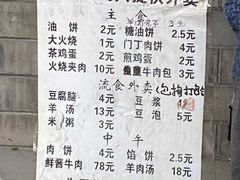 外卖
主食
油饼 2元 糖油饼 2.5元
大火烧 1元 门丁肉饼 4元
茶鸡蛋 2元 煎鸡蛋 2元
火烧夹肉 10元 牛肉包 3元
流食外卖(包狗打哈)
豆腐脑 4元 豆浆
羊汤 13元 豆泡 5元
米粥 3元
中午
肉饼 4元 馅饼 2.5元
鲜酱牛肉 78元 羊肉汤 18元